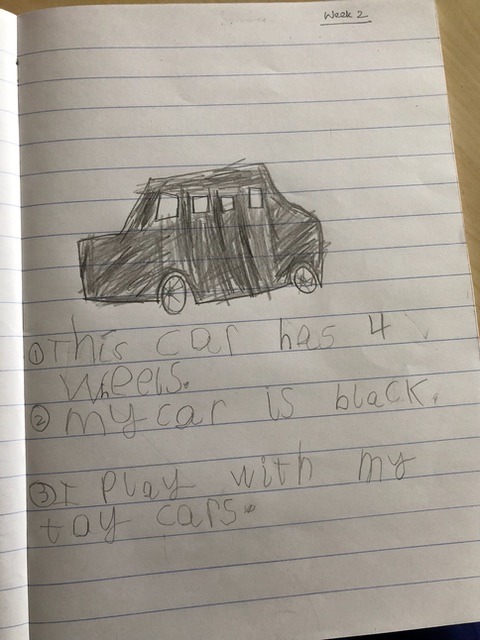 Week 2
① This car has 4
Wheels.
② my car is black.
③ I Play with my
toy cars.